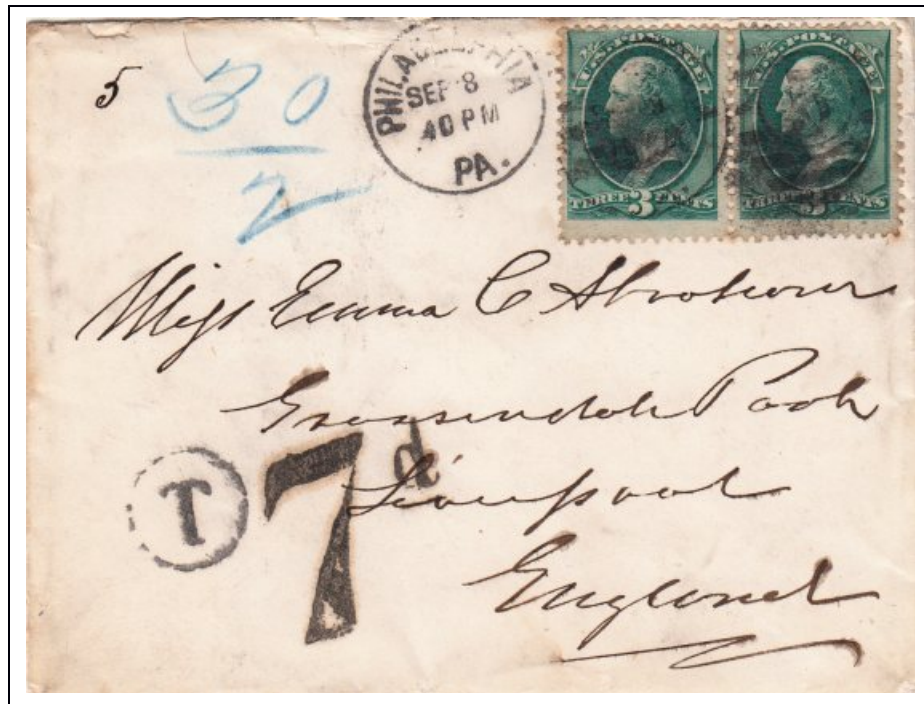 5
30
2
PHILADELPHIA
SEP 8
40 PM
PA.
U.S. POSTAGE
THREE 3 CENTS
U.S. POSTAGE
THREE 3 CENTS
Miss Emma C
Liverpool
England
T
7d